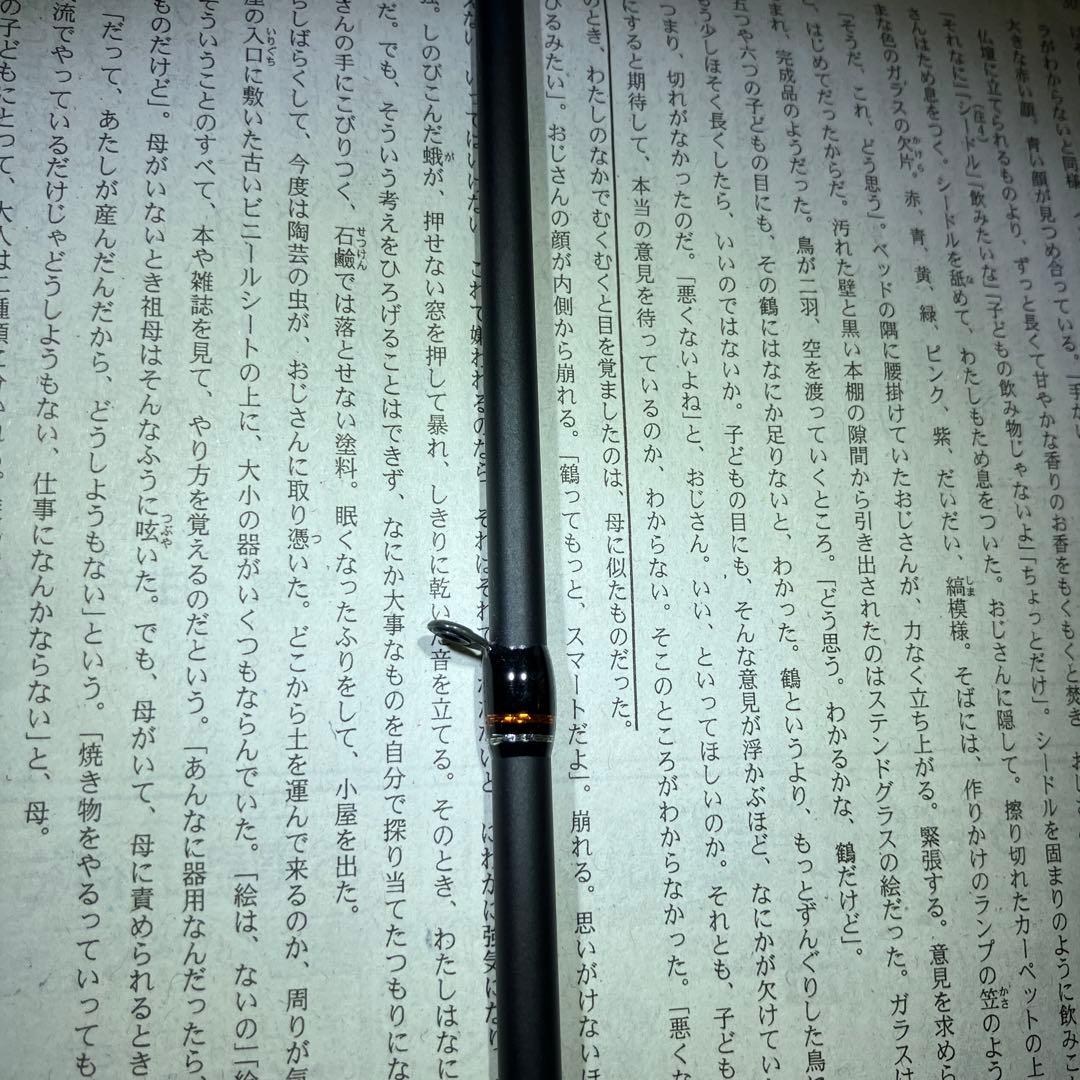 ラがわからないと同様
大きな赤い顔、青い顔が見つめ合っている。「手が
仏壇に立てられるものより、ずっと長くて甘やかな香りのお香をもくもくと焚き、おじ
「それなに」「シードル」(注4)「飲みたいな」「子どもの飲み物じゃないよ」「ちょっとだけ」。シードルを固まりのように飲みこ
さんはため息をつく。シードルを舐めて、わたしもため息をついた。おじさんに隠して。擦り切れたカーペットの上
まな色のガラスの欠片。赤、青、黄、緑、ピンク、紫、だいだい、縞模様。そばには、作りかけのランプの笠のよう
「そうだ、これ、どう思う」。ベッドの隅に腰掛けていたおじさんが、力なく立ち上がる。緊張する。意見を求めら
はじめてだったからだ。汚れた壁と黒い本棚の隙間から引き出されたのはステンドグラスの絵だった。ガラスは
まれ、完成品のようだった。鳥が二羽、空を渡っていくところ。「どう思う。わかるかな、鶴だけど」。
五つや六つの子どもの目にも、その鶴にはなにか足りないと、わかった。鶴というより、もっとずんぐりした鳥に
もう少しほそく長くしたら、いいのではないか。子どもの目にも、そんな意見が浮かぶほど、なにかが欠けてい
つまり、切れがなかったのだ。「悪くないよね」と、おじさん。いい、といってほしいのか。それとも、子ども
にすると期待して、本当の意見を待っているのか、わからない。そこのところがわからなかった。「悪くな
のとき、わたしのなかでむくむくと目を覚ましたのは、母に似たものだった。
ひるみたい」。おじさんの顔が内側から崩れる。「鶴ってもっと、スマートだよ」。崩れる。思いがけないほ
これで嫌われるのなら、それはそれで にわかに強気になり
しのびこんだ蛾が、押せない窓を押して暴れ、しきりに乾いた音を立てる。そのとき、わたしはなに
だ。でも、そういう考えをひろげることはできず、なにか大事なものを自分で探り当てたつもりにな
さんの手にこびりつく、石鹼では落とせない塗料。眠くなったふりをして、小屋を出た。
らしばらくして、今度は陶芸の虫が、おじさんに取り憑いた。どこから土を運んで来るのか、周りが気
屋の入口に敷いた古いビニールシートの上に、大小の器がいくつもならんでいた。「絵は、ないの」「絵
そういうことのすべて、本や雑誌を見て、やり方を覚えるのだという。「あんなに器用なんだったら、
ものだけど」。母がいないとき祖母はそんなふうに呟いた。でも、母がいて、母に責められるとき
「だって、あたしが産んだんだから、どうしようもない」という。「焼き物をやるっていっても
流でやっているだけじゃどうしようもない、仕事になんかならない」と、母。
の子どもにとって、大人は二種類に